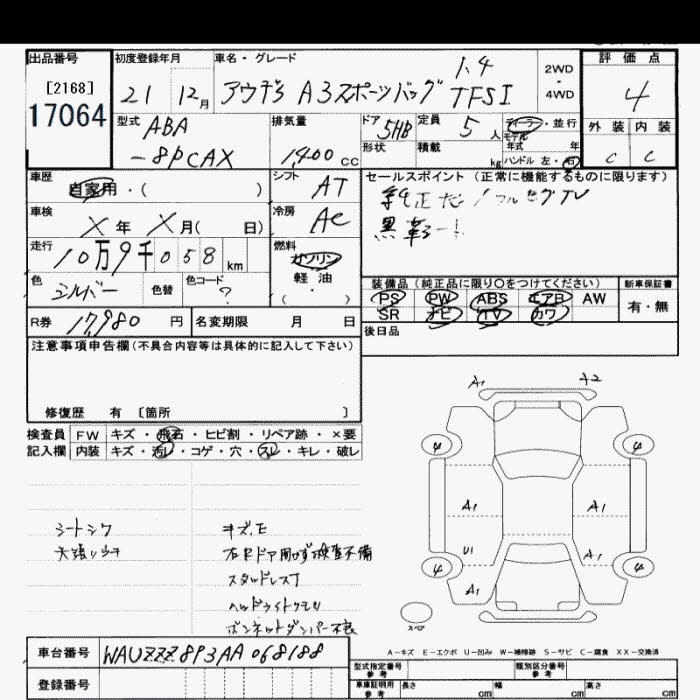 出品番号
[2168]
17064
初度登録年月
21 12月
車名・グレード
アウディ A3スポーツバッグ 1.4 TFSI
2WD
・
4WD
評価点
4
外装 内装
C C
型式
ABA
-8PCAX
排気量
1400 cc
ドア 5HB
形状
定員 5 人
積載 kg
ディーラー・並行
モデル
年式 年
ハンドル 左・右
車歴
自家用・( )
シフト
AT
車検
X 年 X 月( 日)
冷房
AC
走行
10万9千058 km
燃料
ガソリン
軽油
( ・ )
色
シルバー
色替
色コード
?
R券 17,980 円
名変期限 月 日
セールスポイント (正常に機能するものに限ります)
純正ナビ/フルセグTV
黒革シート
装備品(純正品に限り○をつけてください)
PS PW ABS エアB AW
SR ナビ TV カワ
新車保証書
有・無
後日品
注意事項申告欄(不具合内容等は具体的に記入して下さい)
修復歴 有 〔箇所 〕
検査員 FW キズ・飛石・ヒビ割・リペア跡・×要
記入欄 内装 キズ・汚レ・コゲ・穴・スレ・キレ・破レ
シートシワ
天張りウキ
キズ,E
右Rドア開かず検査不備
スタッドレスT
ヘッドライトクモリ
ボンネットダンパー不良
A1 A2
4 4
A1 A1
U1 A1
4 4
A1
スペア
A－キズ E－エクボ U－凹み W－補修跡 S－サビ C－腐食 XX－交換済
車台番号 WAUZZZ8P3AA068188
登録番号
型式指定番号
参考
類別区分番号
参考
車庫証明用
参考
長さ cm 幅 cm 高さ cm